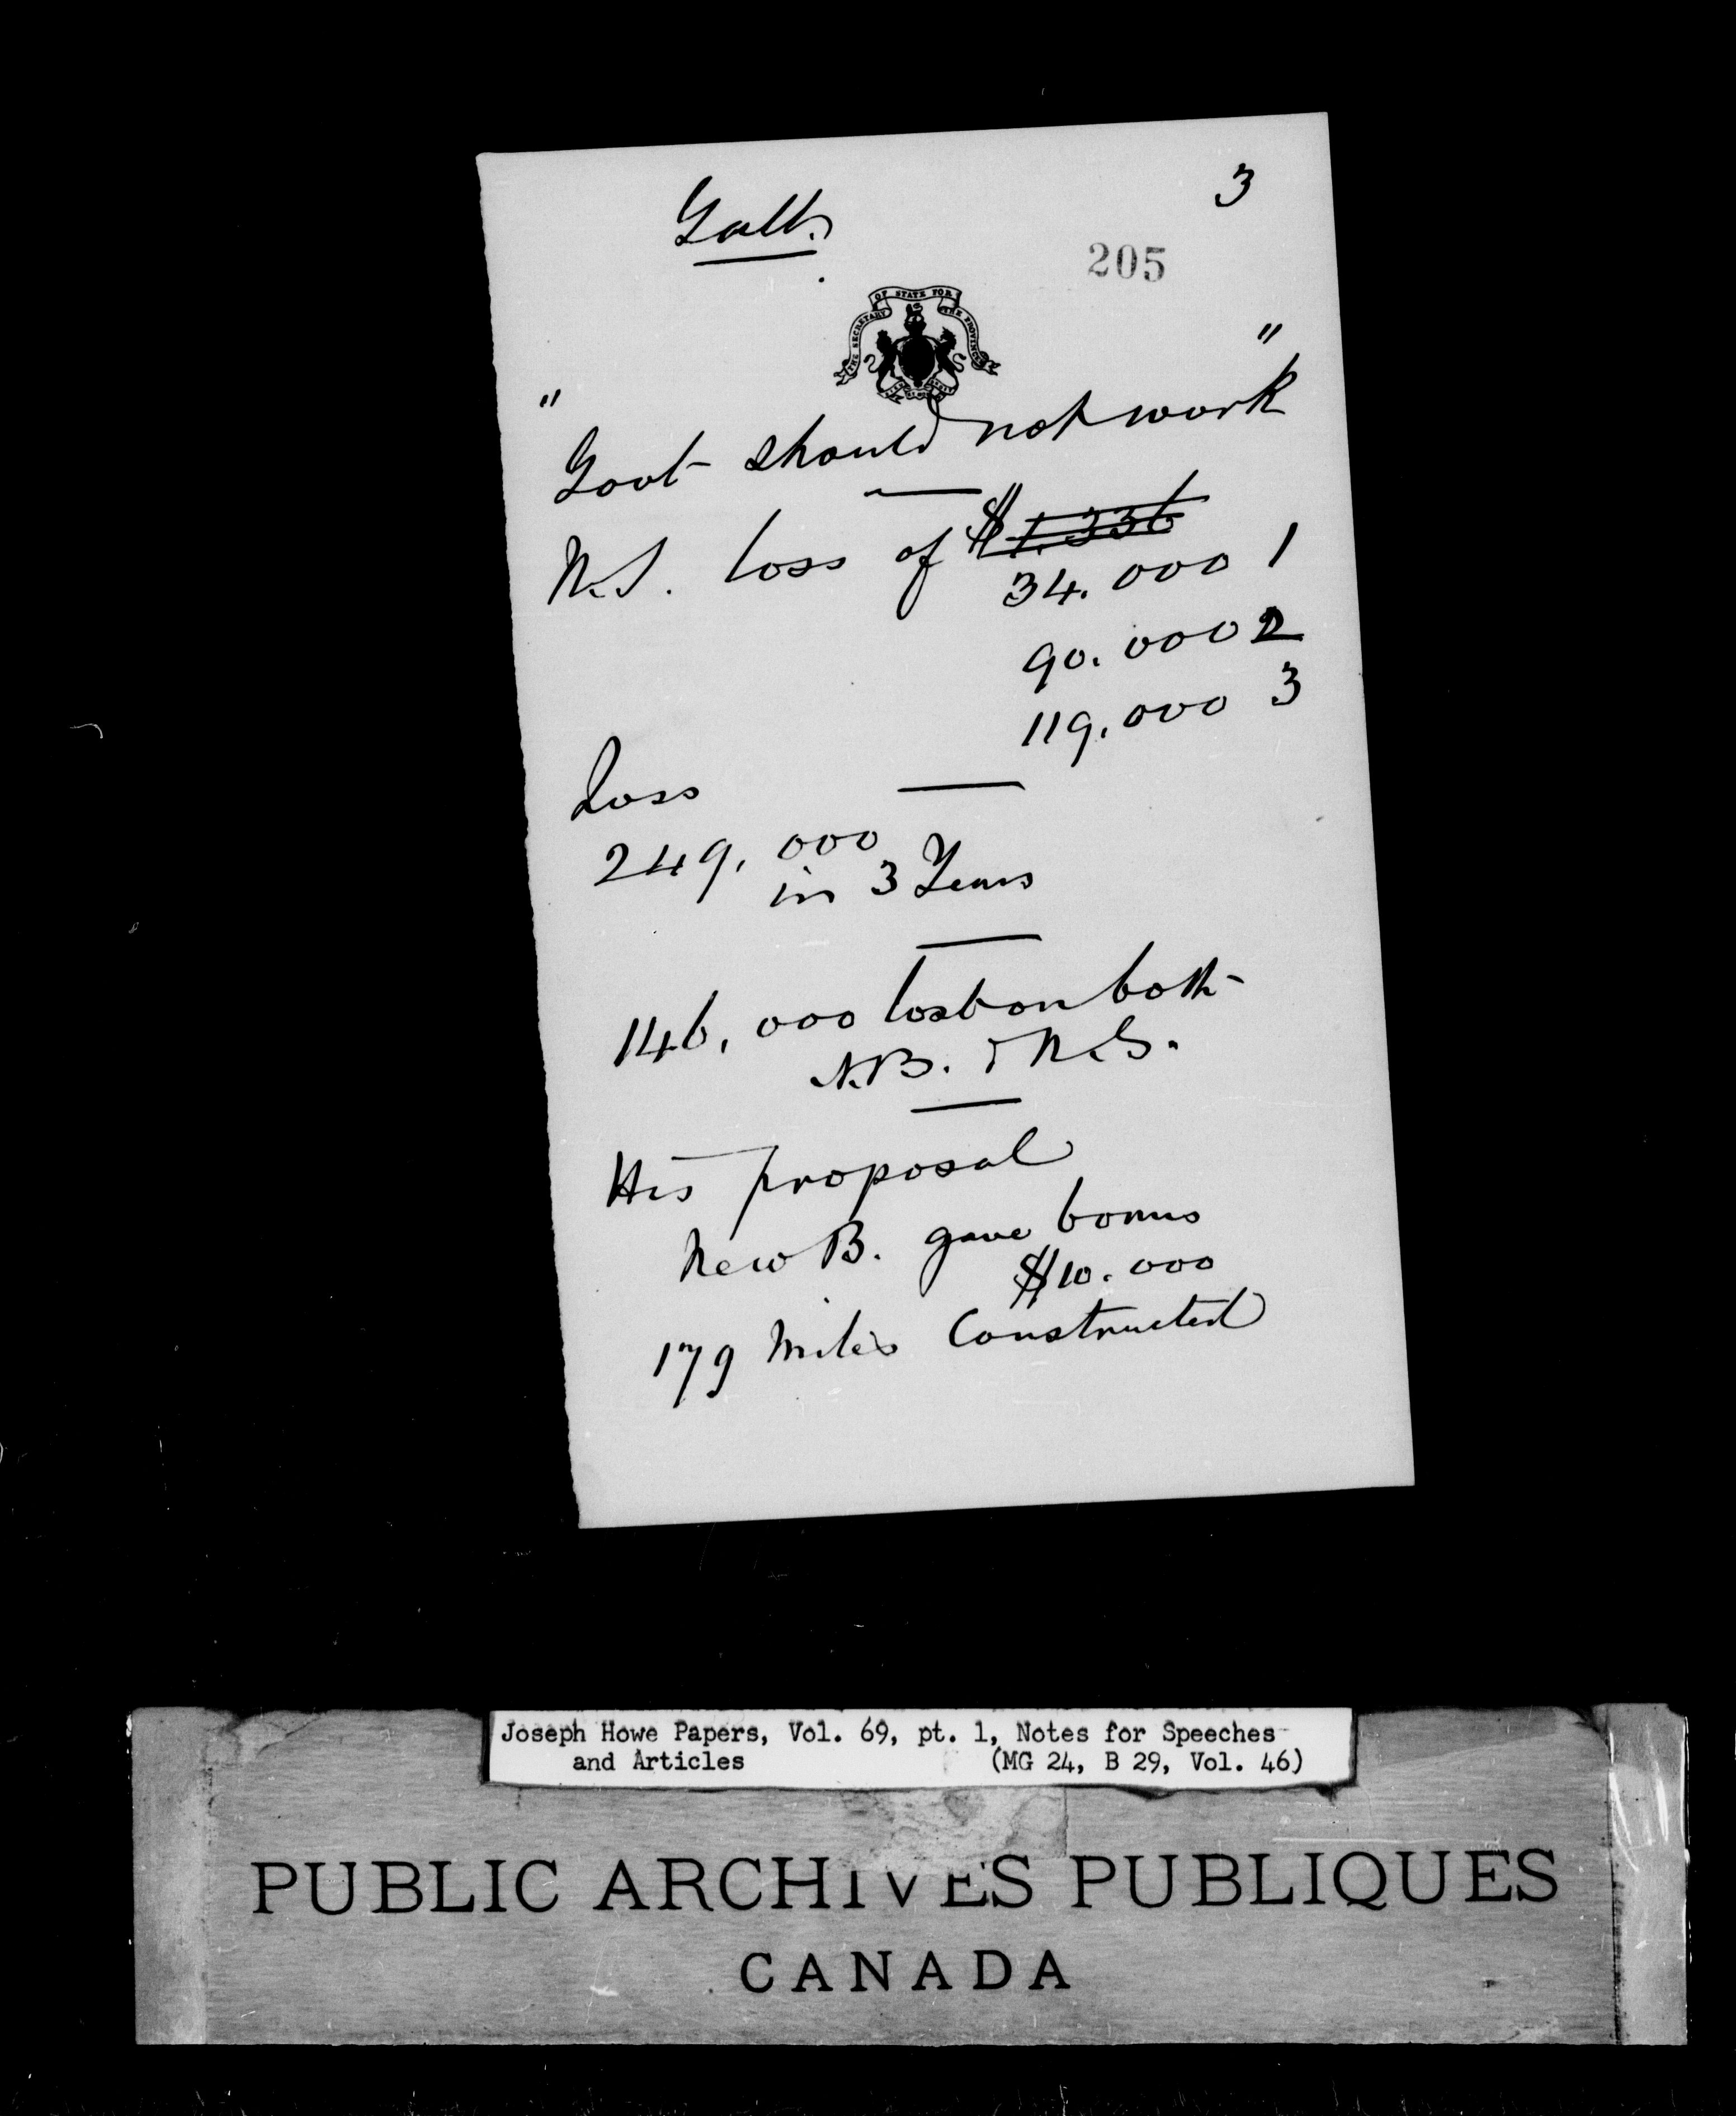 Galt.
3
205
THE SECRETARY OF STATE FOR THE PROVINCES
" "
Govt should not work
N.S. loss of $ 1.336
34.000 1
90.000 2
119,000 3
Loss
249,000
in 3 Years
146,000 lost on both
N.B. & N.S.
His proposal
New B. gave bonus
$10.000
179 Miles Constructed
Joseph Howe Papers, Vol. 69, pt. 1, Notes for Speeches
and Articles (MG 24, B 29, Vol. 46)
PUBLIC ARCHIVES PUBLIQUES
CANADA